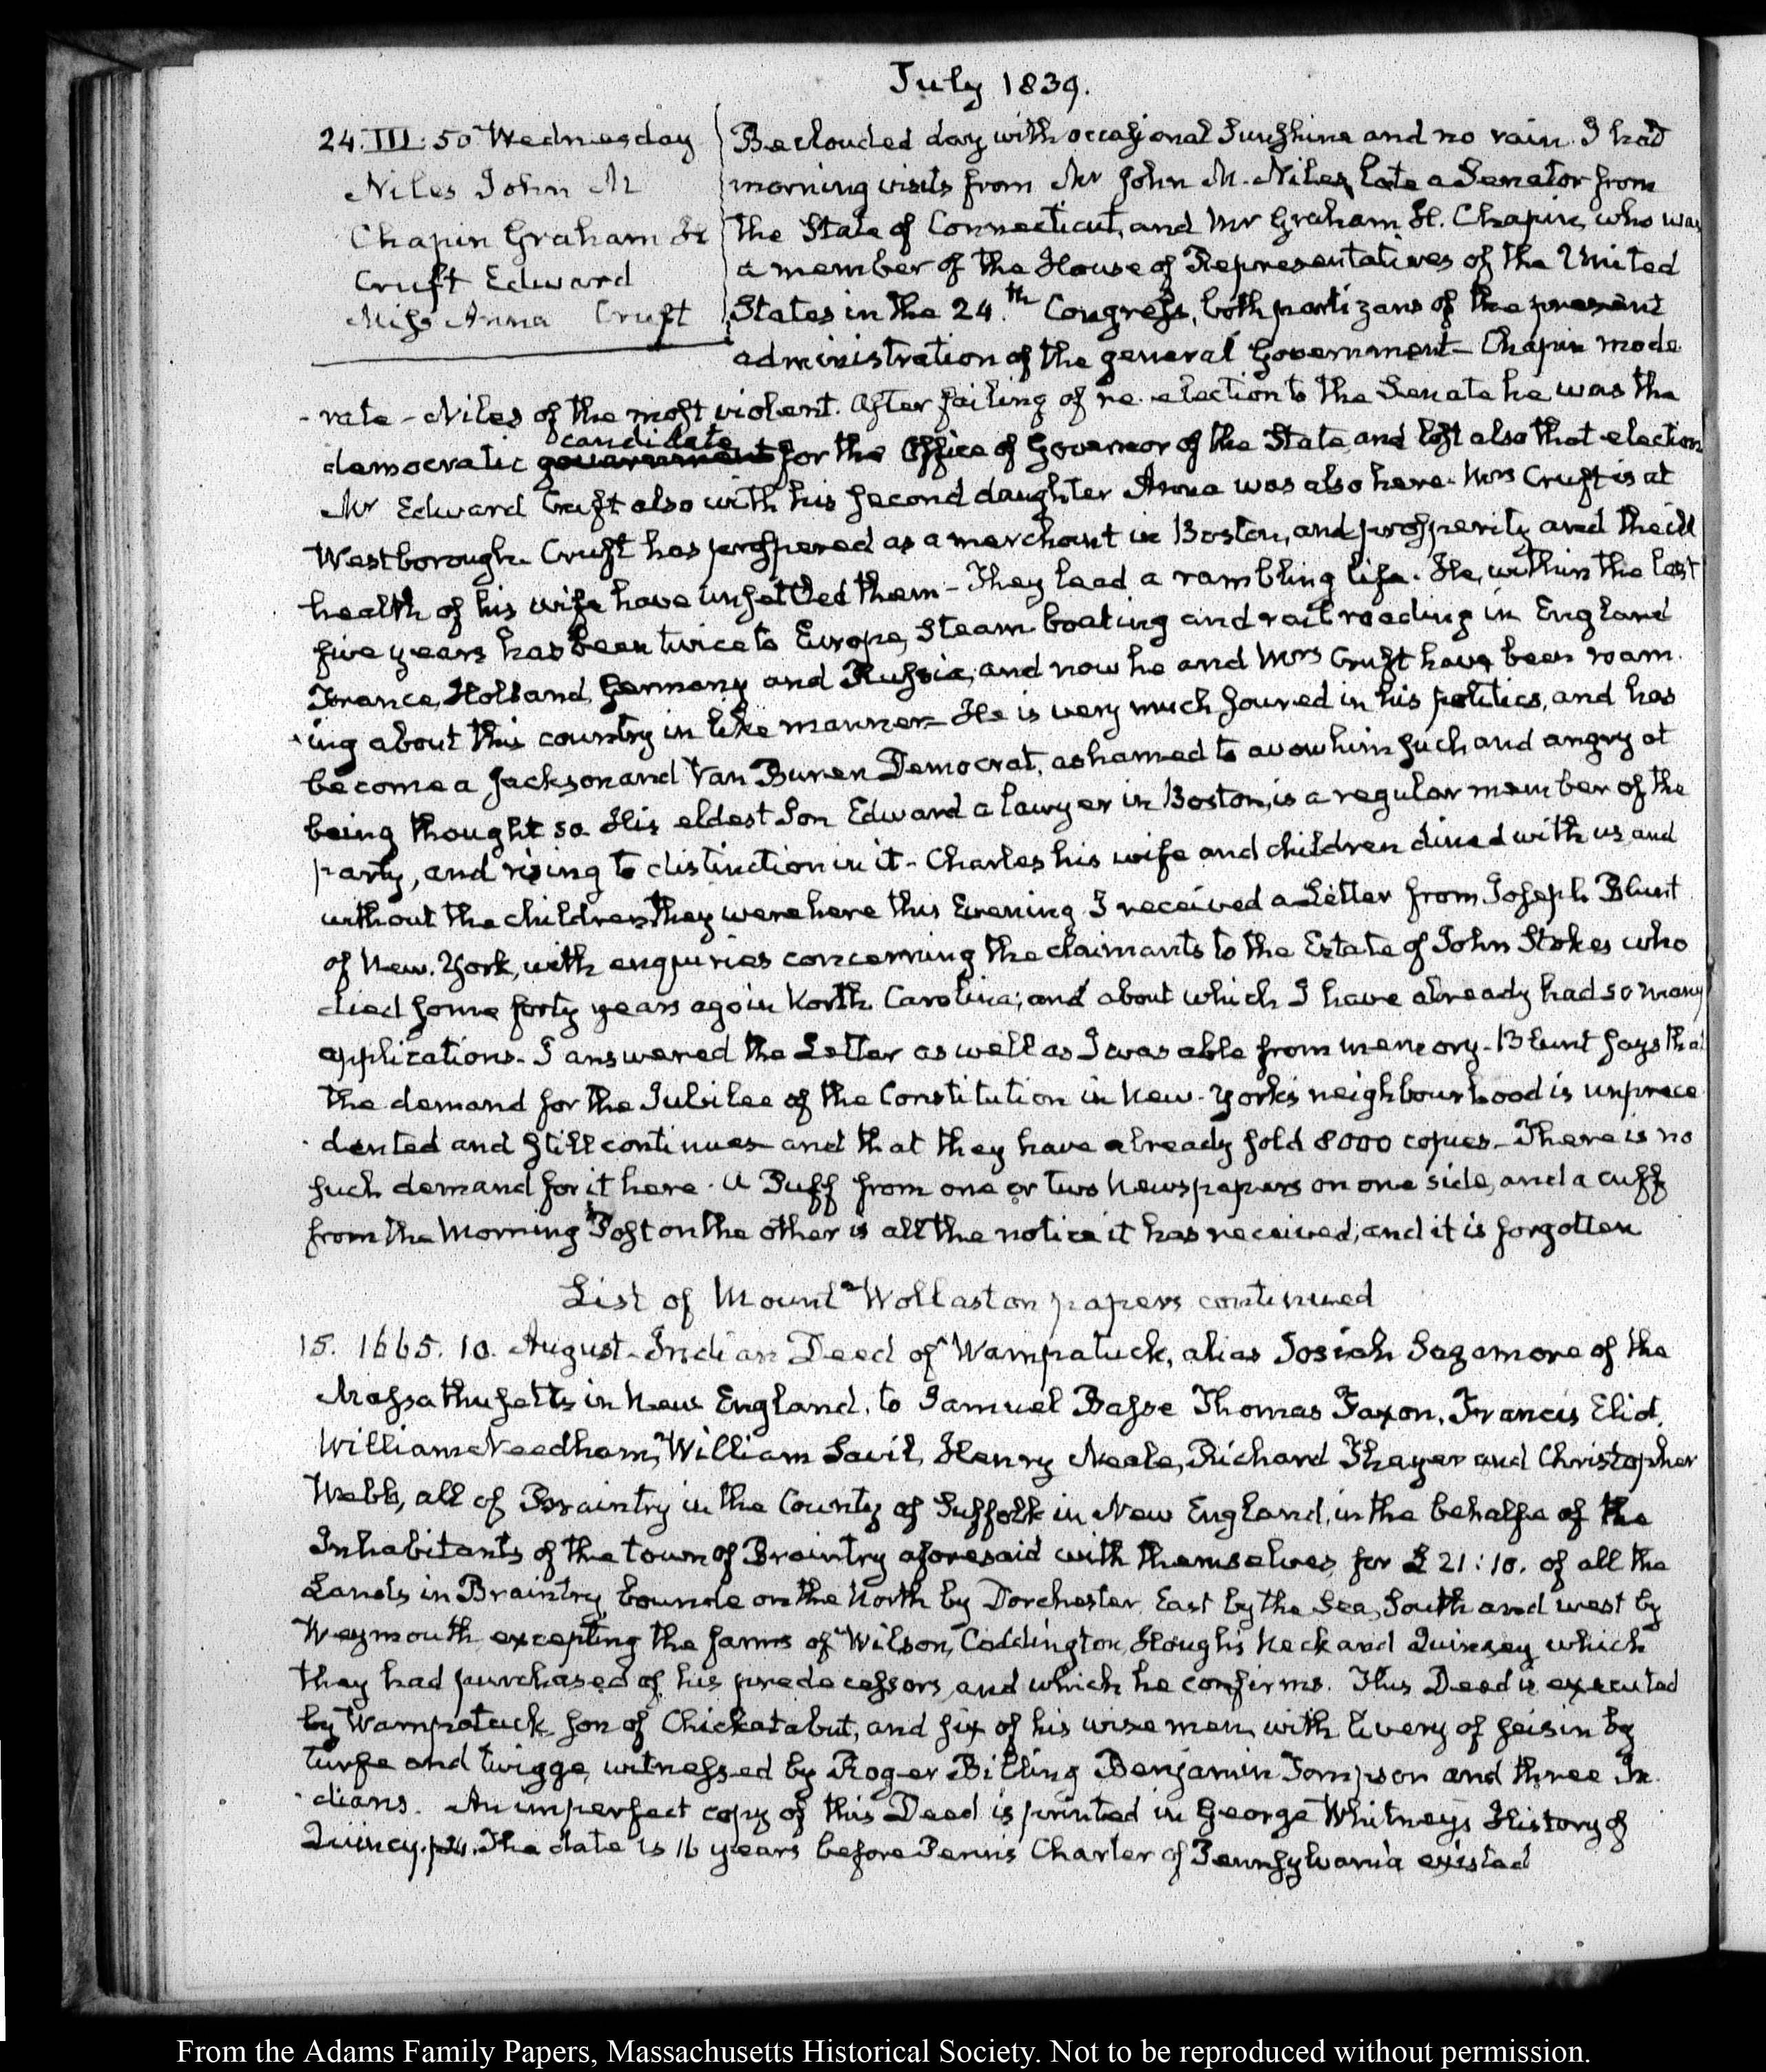 July 1839.
24. III. 50 Wednesday
Niles John M
Chapin Graham H
Cruft Edward
Miss Anna Cruft
Beclouded day with occasional Sunshine and no rain. I had
morning visits from Mr John M. Niles, late a Senator from
the State of Connecticut, and Mr Graham H. Chapin, who was
a member of the House of Representatives of the United
States in the 24.th Congress, both partizans of the present
administration of the general Government – Chapin mode
-rate – Niles of the most violent. After failing of re-election to the Senate he was the
candidate
democratic government for the Office of Governor of the State, and lost also that election
Mr Edward Cruft also with his second daughter Anna was also here. Mrs Cruft is at
Westborough. Cruft has prospered as a merchant in Boston, and prosperity and the ill
health of his wife have unsettled them – They lead a rambling life. He, within the last
five years has been twice to Europe, Steam boating and rail roading in England
France, Holland, Germany and Russia, and now he and Mrs Cruft have been roam-
-ing about this country in like manner – He is very much soured in his politics, and has
become a Jackson and Van Buren Democrat, ashamed to avow him such and angry at
being thought so. His eldest Son Edward a lawyer in Boston, is a regular member of the
party, and rising to distinction in it – Charles his wife and children dined with us, and
without the children they were here this Evening. I received a Letter from Joseph Blunt
of New-York, with enquiries concerning the claimants to the Estate of John Stokes who
died some forty years ago in North Carolina; and about which I have already had so many
applications. I answered the Letter as well as I was able from memory – Blunt says that
the demand for the Jubilee of the Constitution in New-York's neighbourhood is unprece
-dented and still continues – and that they have already sold 8000 copies – There is no
such demand for it here. A Puff from one or two Newspapers on one side, and a cuff
from the Morning Post on the other is all the notice it has received; and it is forgotten
List of Mount Wollaston papers continued
15. 1665. 10. August – Indian Deed of Wampatuck, alias Josiah Sagamore of the
Massathusetts in New England, to Samuel Basse Thomas Faxon, Francis Eliot,
William Needham, William Savil, Henry Neale, Richard Thayer and Christopher
Webb, all of Braintry in the County of Suffolk in New England, in the behalfe of the
Inhabitants of the town of Braintry aforesaid with themselves, for £21:10. of all the
Lands in Braintry, bounde on the North by Dorchester, East by the Sea, South and west by
Weymouth excepting the farms of Wilson, Coddington, Hough's Neck and Quinsey which
they had purchased of his predecessors, and which he confirms. This Deed is executed
by Wampatuck son of Chickatabut, and six of his wise men, with livery of seisin by
turfe and twigge, witnessed by Roger Billing Benjamin Tompson and three In
-dians. An imperfect copy of this Deed is printed in George Whitney's History of
Quincy. p24. The date is 16 years before Penn's Charter of Pennsylvania existed
From the Adams Family Papers, Massachusetts Historical Society. Not to be reproduced without permission.